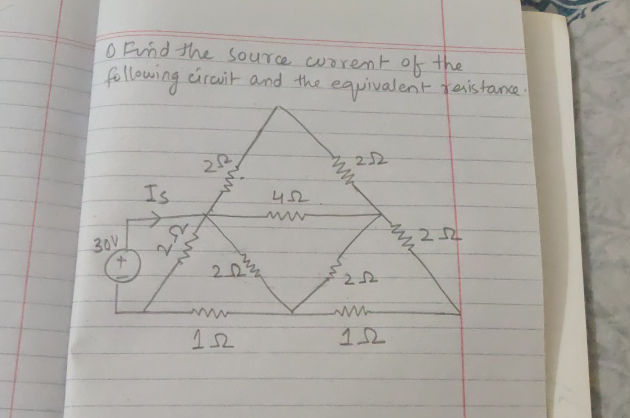 ① Find the source current of the
following circuit and the equivalent resistance.
2Ω 2Ω
Is 4Ω
30V 2Ω 2Ω
+
2Ω 2Ω
1Ω 1Ω